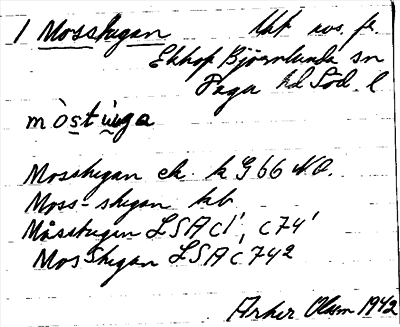 1 Mosstugan Utt. av. fr.
Ekhop Björnlunda sn
Daga hd Söd. l
mòstùga
Mosstugan ek. k G66 N.O.
Moss-stugan kb
Måsstugan LSA C1', C74'
Mosstugan LSA C74²
Arker Olsm 1942